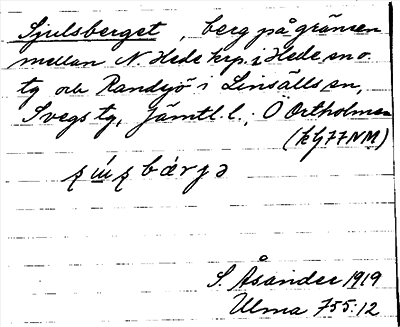 Sjulsberget, berg på gränsen
mellan N. Hede krp. i Hede sn o.
tg och Randsjö i Linsälls sn,
Svegs tg, Jämtl. l.; Ö Ortholmen
(k G 77 NM)
bárjə
S. Åsander 1919
Ulma 755:12